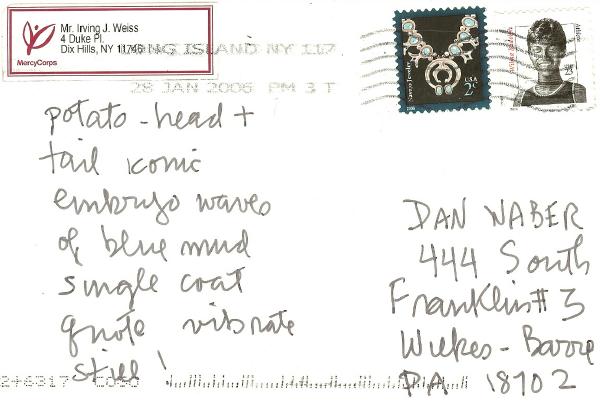 Mr. Irving J. Weiss
4 Duke Pl.
Dix Hills, NY 11746
MercyCorps
LONG ISLAND NY 117
28 JAN 2006 PM 3 T
Navajo Jewelry
USA
2c
2006
23
potato-head +
tail iconic
embryo waves
of blue mud
single coat
quote vibrate
still!
DAN WABER
444 South
Franklin #3
Wilkes-Barre
PA 18702